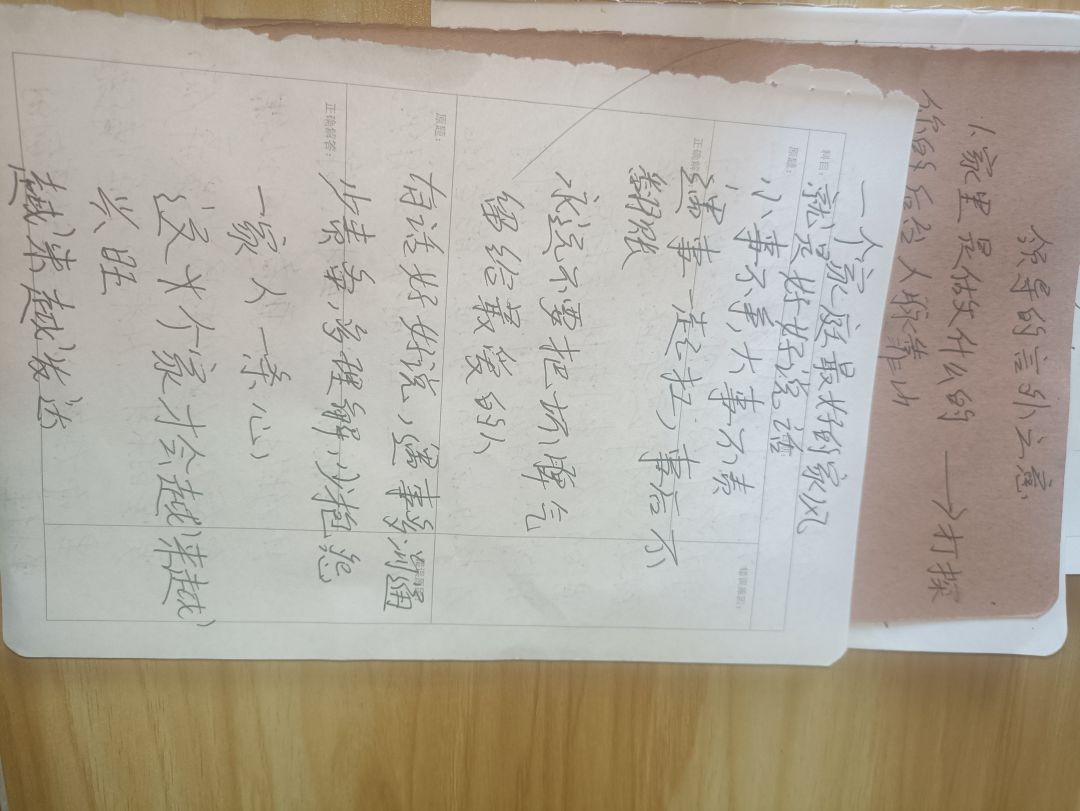 领导的言外之意
1、家里是做什么的 → 打探
你的后台人脉靠山
科目：
一个家庭最好的家风
原题：
就是好好说话
小事不争大事不责
正确解答：
错误原因：
遇事一起扛，事后不
翻旧账
永远不要把坏脾气
留给最爱的人
原题：
有话好好说，遇事多沟通
错误原因：
正确解答：
少责备，多理解，少抱怨
一家人一条心
这个家才会越来越
兴旺
越来越发达